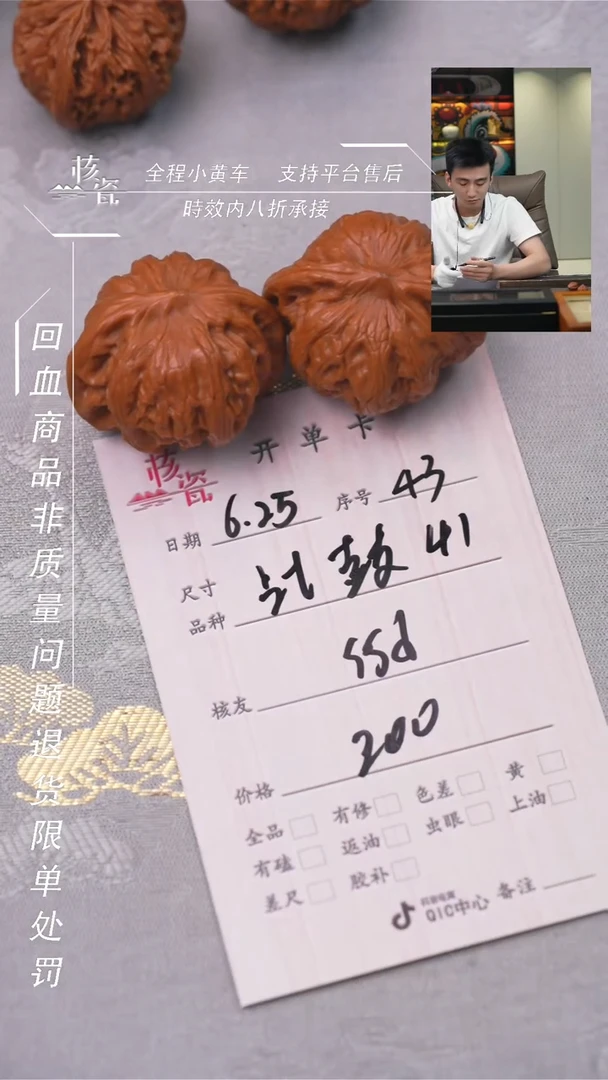 核瓷
全程小黄车 支持平台售后
時效内八折承接
回血商品非质量问题退货限单处罚
核瓷
开单卡
日期 6.25 序号 43
尺寸
品种 鼓 41
核友 ssd
价格 200
全品 有修 色差 黄
有磕 返油 虫眼 上油
差尺 胶补
抖音电商
QIC中心 备注